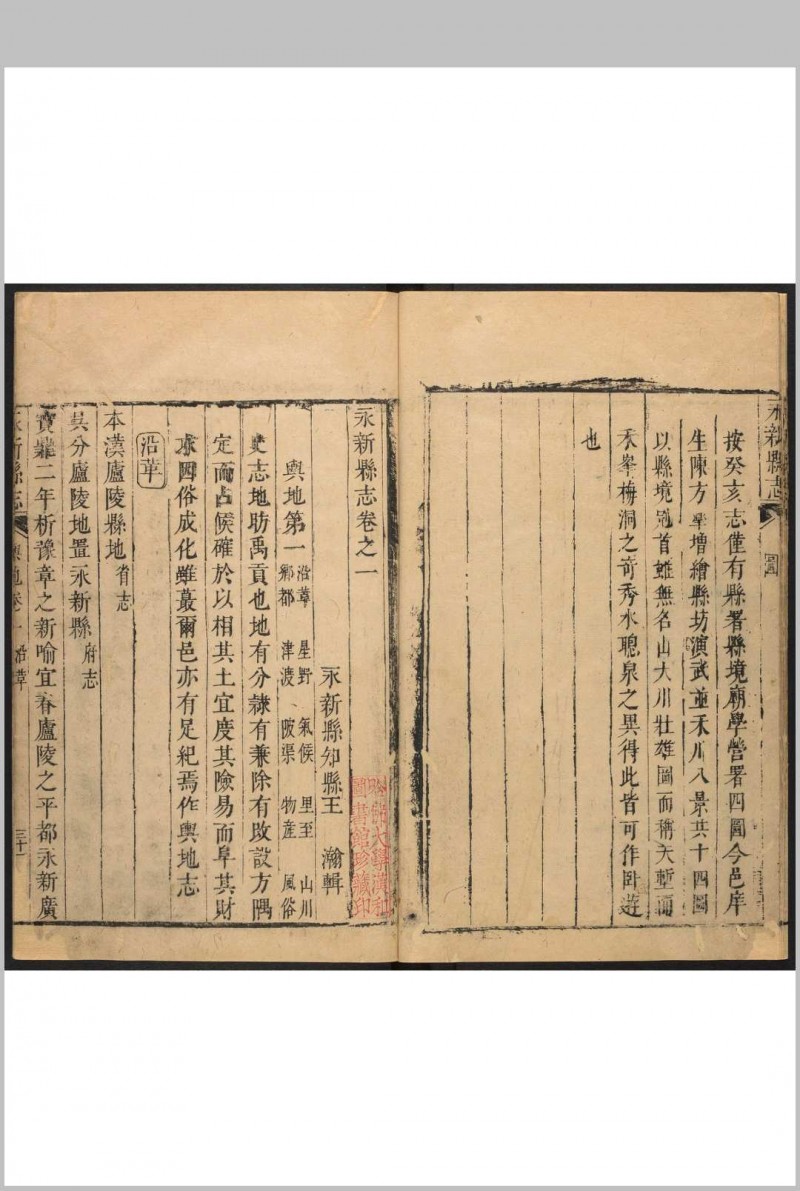 永新縣志
圖
按癸亥志僅有縣署縣境廟學營署四圖今邑庠
生陳方㽦增繪縣坊演武並禾川八景共十四圖
以縣境冠首雖無名山大川壯雄圖而稱天塹而
禾峯梅洞之奇秀水聰泉之異得此皆可作卧遊
也
永新縣志卷之一
永新縣知縣王 瀚輯
輿地第一 沿革 星野 氣候 里至 山川
鄉都 津渡 陂渠 物產 風俗
史志地昉禹貢也地有分隷有兼除有敗設方隅
定而占候確於以相其土宜度其險易而阜其財
求因俗成化雖蕞爾邑亦有足紀焉作輿地志
沿革
本漢廬陵縣地 省志
吳分廬陵地置永新縣 府志
寶鼎二年析豫章之新喻宜春廬陵之平都永新廣
永新縣志
輿地卷一 沿革
三十一
哈佛大學漢和
圖書館珍藏印